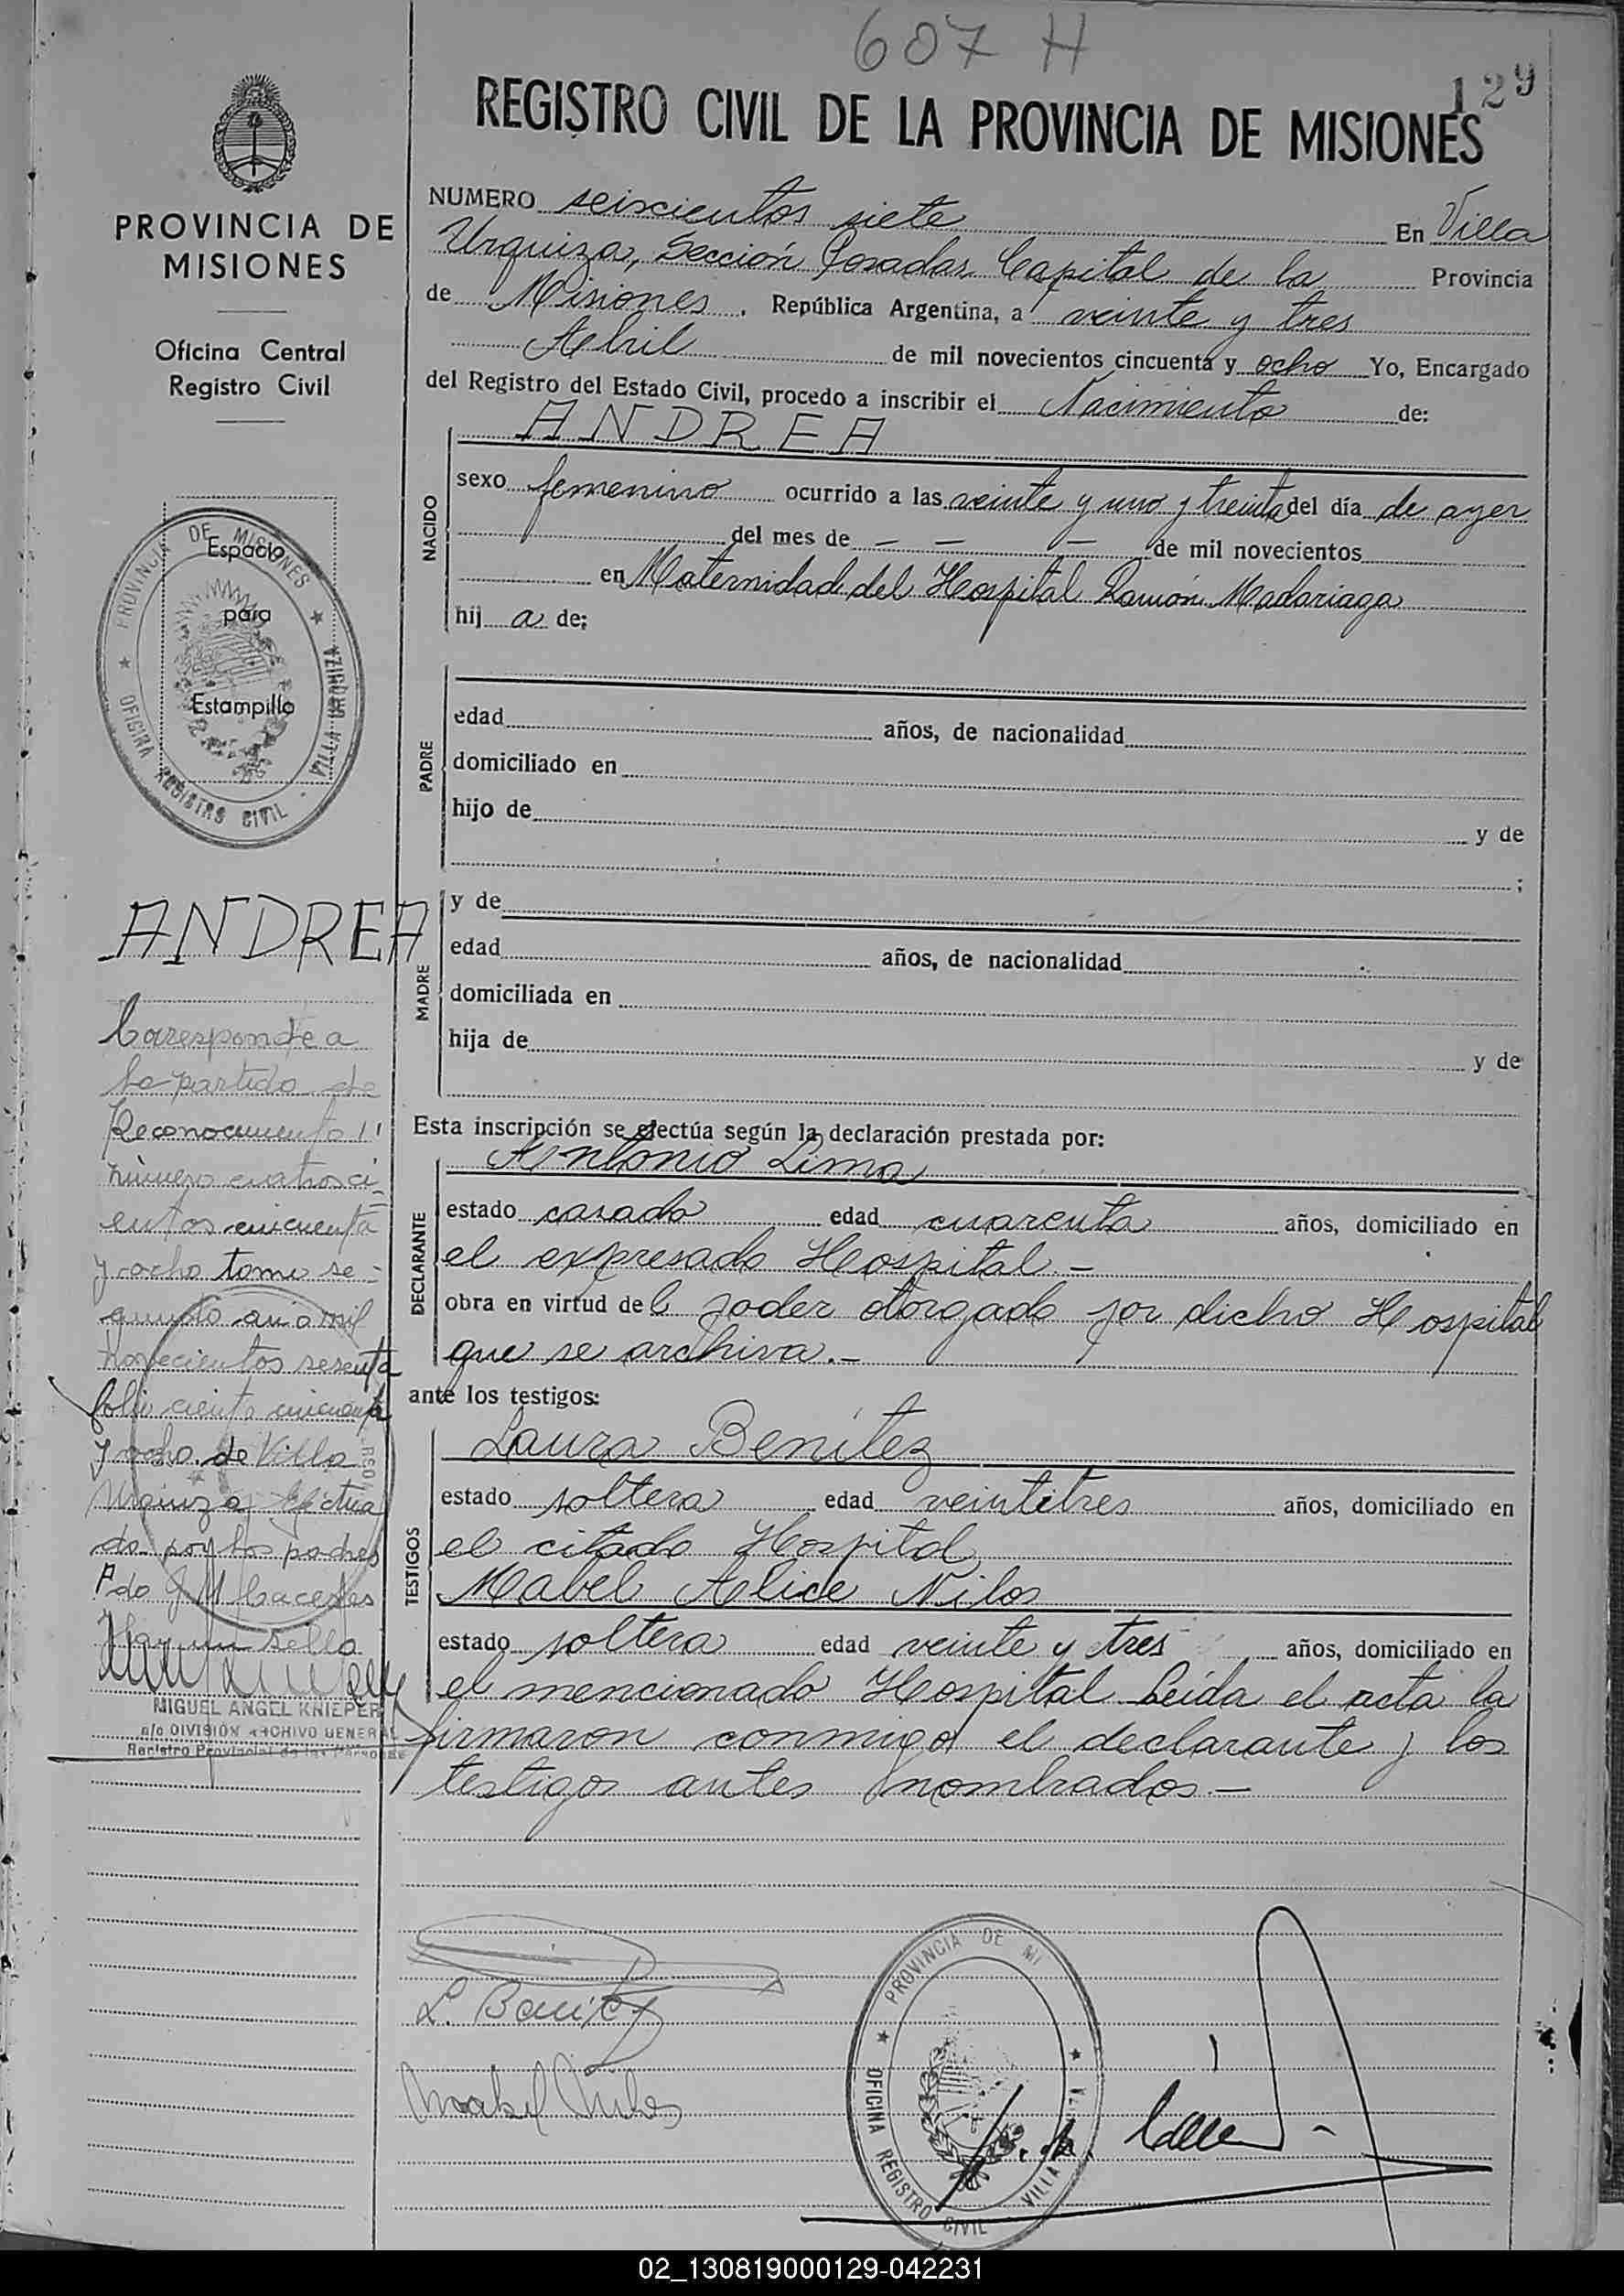 607 H
129
REGISTRO CIVIL DE LA PROVINCIA DE MISIONES
PROVINCIA DE
MISIONES
Oficina Central
Registro Civil
NUMERO seiscientos siete En Villa
Urquiza, Sección Posadas Capital de la Provincia
de Misiones. República Argentina, a veinte y tres
Abril de mil novecientos cincuenta y ocho Yo, Encargado
del Registro del Estado Civil, procedo a inscribir el Nacimiento de:
NACIDO
ANDREA
sexo femenino ocurrido a las veinte y uno y treinta del día de ayer
del mes de — — — de mil novecientos
en Maternidad del Hospital Ramón Madariaga
hij a de:
PROVINCIA DE MISIONES
OFICINA REGISTRO CIVIL - VILLA URQUIZA
Espacio
para
Estampilla
PADRE
edad años, de nacionalidad
domiciliado en
hijo de y de
;
MADRE
y de
edad años, de nacionalidad
domiciliada en
hija de y de
ANDREA
Corresponde a
la partida de
Reconocimiento
número cuatrosci-
entos cincuenta
y ocho tomo se-
gundo año mil
novecientos sesenta
folio ciento cincuenta
y ocho de Villa
Urquiza efectua
do por los padres
Fdo J M Caceres
Hay un sello
MIGUEL ANGEL KNIEPER
a/c DIVISIÓN ARCHIVO GENERAL
Registro Provincial de las Personas
Esta inscripción se efectúa según la declaración prestada por:
DECLARANTE
Antonio Lima
estado casado edad cuarenta años, domiciliado en
el expresado Hospital.-
obra en virtud del poder otorgado por dicho Hospital
que se archiva.-
ante los testigos:
TESTIGOS
Laura Benítez
estado soltera edad veintitres años, domiciliado en
el citado Hospital
Mabel Alice Nilos
estado soltera edad veinte y tres años, domiciliado en
el mencionado Hospital Leída el acta la
firmaron conmigo el declarante y los
testigos antes nombrados.-
L. Benitez
Mabel Nilos
PROVINCIA DE MI
OFICINA REGISTRO CIVIL VILLA
02_130819000129-042231